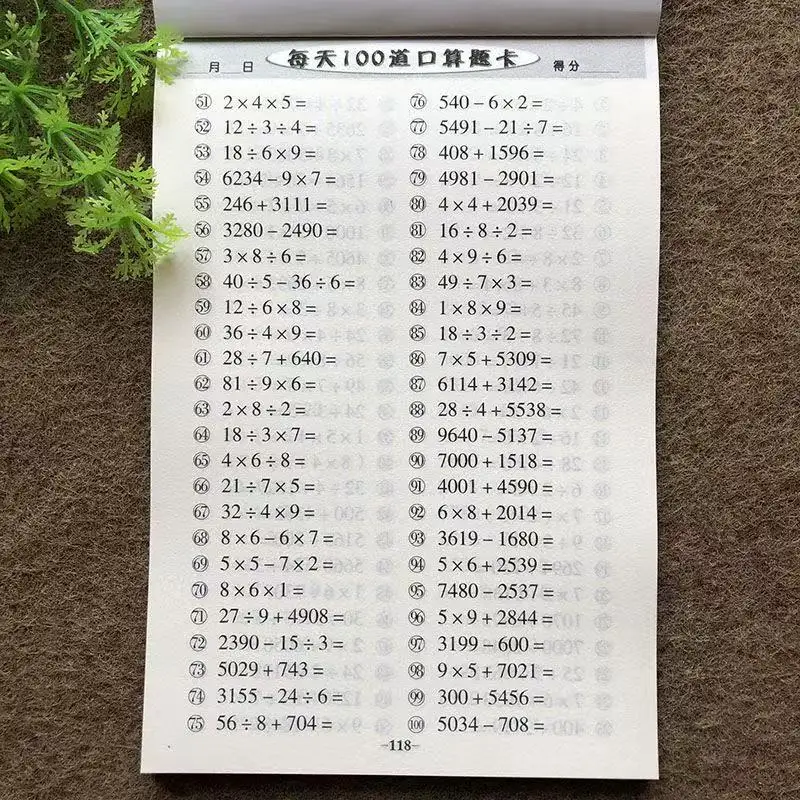 月 日 每天100道口算题卡 得分
51 2×4×5=
52 12÷3÷4=
53 18÷6×9=
54 6234-9×7=
55 246+3111=
56 3280-2490=
57 3×8÷6=
58 40÷5-36÷6=
59 12÷6×8=
60 36÷4×9=
61 28÷7+640=
62 81÷9×6=
63 2×8÷2=
64 18÷3×7=
65 4×6÷8=
66 21÷7×5=
67 32÷4×9=
68 8×6-6×7=
69 5×5-7×2=
70 8×6×1=
71 27÷9+4908=
72 2390-15÷3=
73 5029+743=
74 3155-24÷6=
75 56÷8+704=
76 540-6×2=
77 5491-21÷7=
78 408+1596=
79 4981-2901=
80 4×4+2039=
81 16÷8÷2=
82 4×9÷6=
83 49÷7×3=
84 1×8×9=
85 18÷3÷2=
86 7×5+5309=
87 6114+3142=
88 28÷4+5538=
89 9640-5137=
90 7000+1518=
91 4001+4590=
92 6×8+2014=
93 3619-1680=
94 5×6+2539=
95 7480-2537=
96 5×9+2844=
97 3199-600=
98 9×5+7021=
99 300+5456=
100 5034-708=
-118-